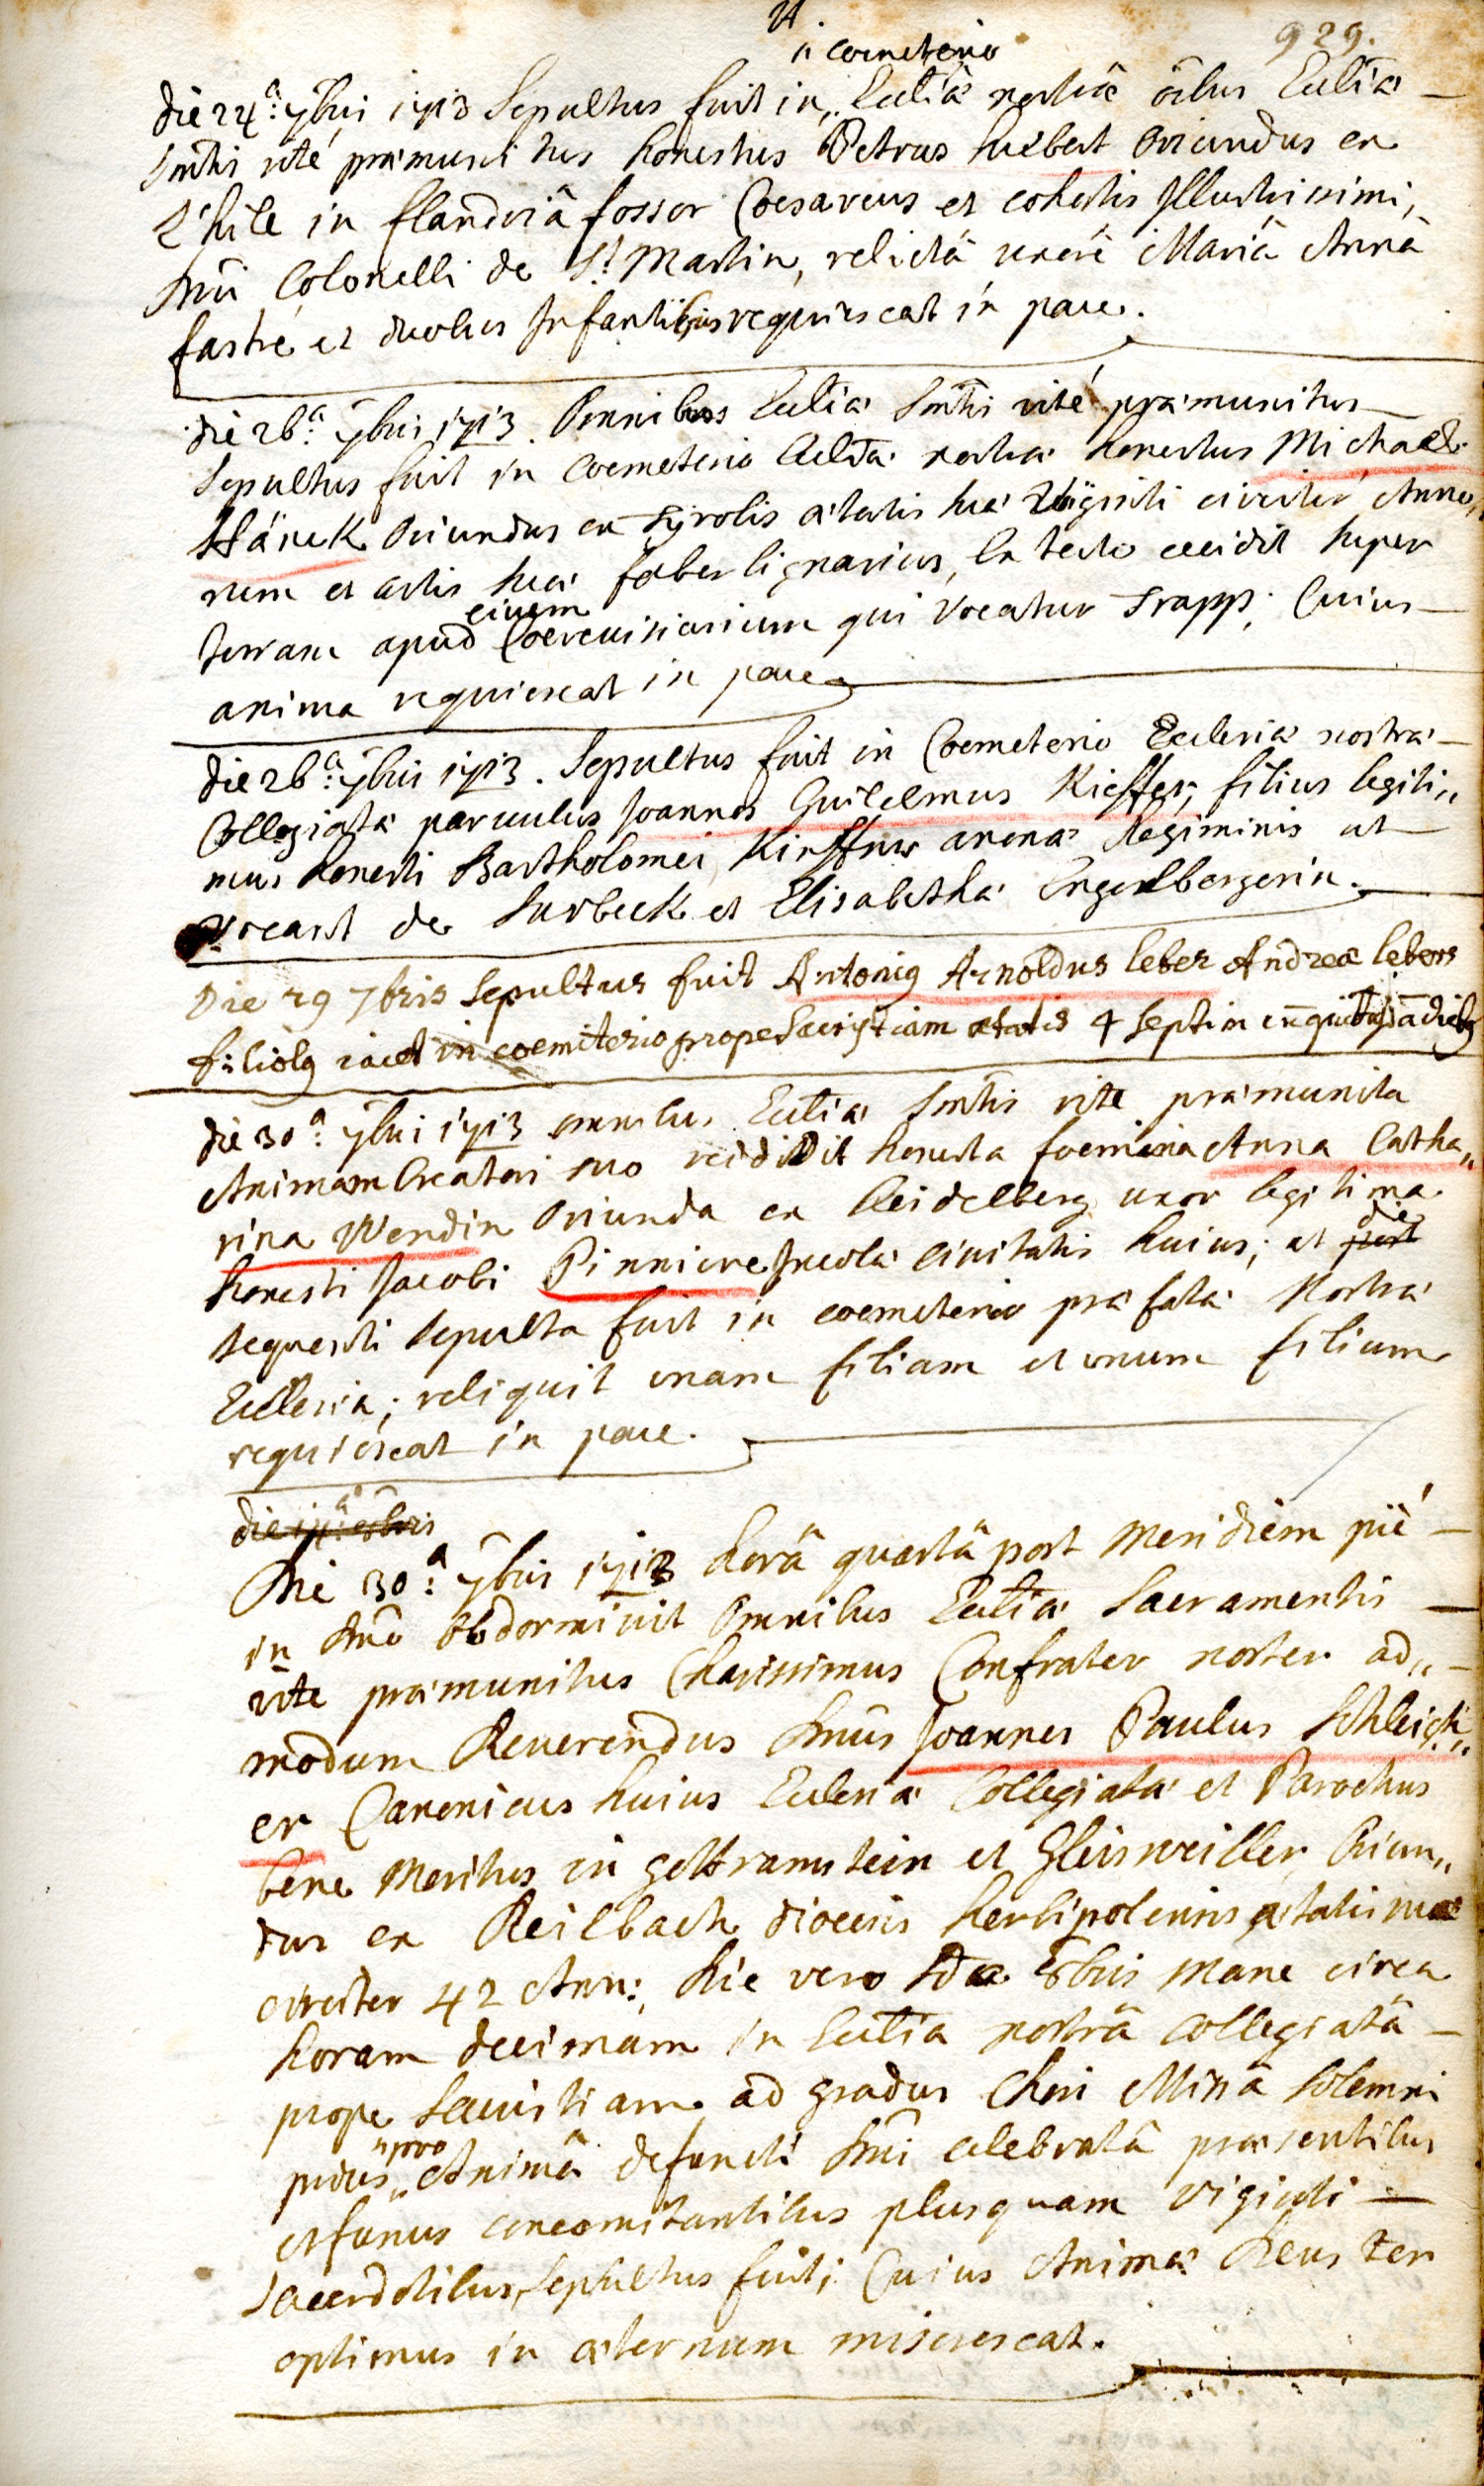 929.
in coemeterio
die 24.a 7bris 1713 Sepultus fuit in Eccl̄iâ nostrâ oībus Eccl̄iæ
Smtis rité præmunitus honestus Petrus huebert Oriundus ex
L'hile in flandriâ fossor Coesareus et cohortis Illustrissimi,
Dn̄i Colonelli de St Martin, relictâ uxore Mariâ Annâ
fastré et duobus Infantibus requiescat in pace.
die 26.a 7bris 1713. Omnibus Eccl̄iæ Smtis rité præmunitus
Sepultus fuit in Coemeterio Eccl̄iæ nostræ honestus Michael
Hänck Oriundus ex Tyrolis ætatis suæ Viginti circiter Anno,
rum et artis suæ faber lignarius, ex tecto cecidit super
terram apud civem Coerevisiarium qui vocatur Trapp; Cuius
anima requiescat in pace
die 26.a 7bris 1713. Sepultus fuit in Coemeterio Ecclesiæ nostræ
Collegiatæ parvulus Joannes Guilelmus Kieffer, filius legiti,,
mus honesti Bartholomei Kieffner Regiminis
vocant de Surbeck et Elisabethæ Engelbergerin.
Die 29 7bris Sepultus fuit Antoni9 Arnoldus leber Andreæ lebers
filiol9 iacet in coemiterio prope Sacristiam ætatis 4 Septim
die 30.a 7bris 1713 omnibus Eccl̄iæ Smtis rite præmunita
Animam Creatori suo reddidit honesta foemina Anna Catha,,
rina Wendin Oriunda ex Heidelberg uxor legitima
honesti Jacobi Pinniere Incolæ civitatis huius; et post die
sequenti sepulta fuit in coemeterio præfatæ Nostræ
Ecclesiæ; reliquit unam filiam et unum filium
requiescat in pace.
die
Die 30.a 7bris 1713 horâ quartâ post Meridiem pié
in Dn̄o Obdormivit Omnibus Eccl̄iæ Sacramentis
rite præmunitus Charissimus Confrater noster ad,,
modum Reverendus Dn̄us Joannes Paulus Schleich,,
er Canonicus huius Ecclesiæ Collegiatæ et Parochus
bene Meritus in gottramstein et Gleisweiller Oriun,,
dus ex Reilbach diocesis herbipolensis ætatis suæ
circiter 42 Ann:, die vero 2da 8bris Mane circa
horam decimam in Eccl̄ia nostrâ Collegiatâ
prope Sacristiam ad gradus Chori Missâ Solemni
prius pro Animâ defuncti Dn̄i celebratâ præsentibus
et funus concomitantibus plusquam Viginti
Sacerdotibus, Sepultus fuit; Cuius Animæ Deus ter
optimus in æternum miserescat.